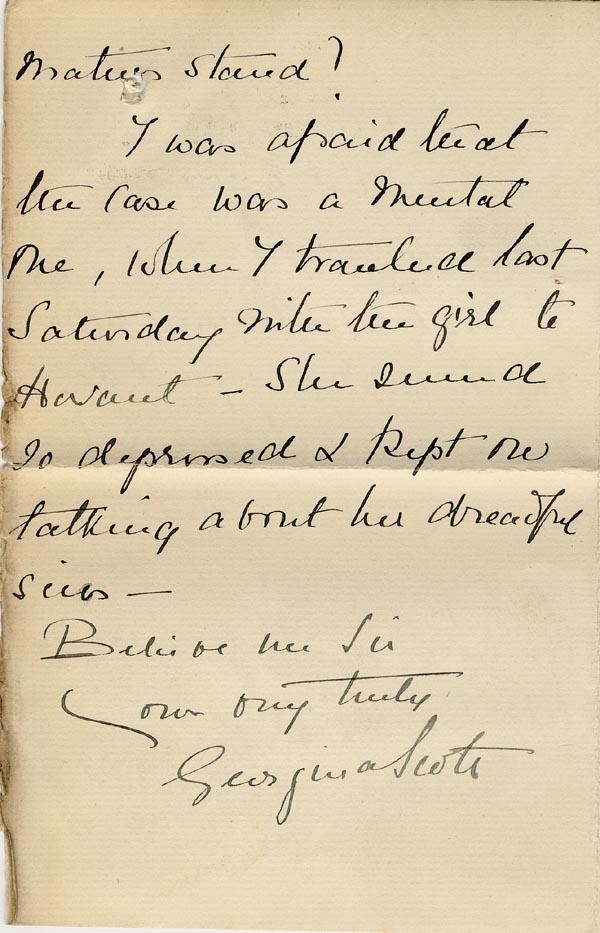 matters stand?
I was afraid that
the case was a mental
one, when I travelled last
Saturday with the girl to
Havant – She seemed
so depressed & kept on
talking about her dreadful
sins –
Believe me Sir
Yours very truly
Georgina Scott